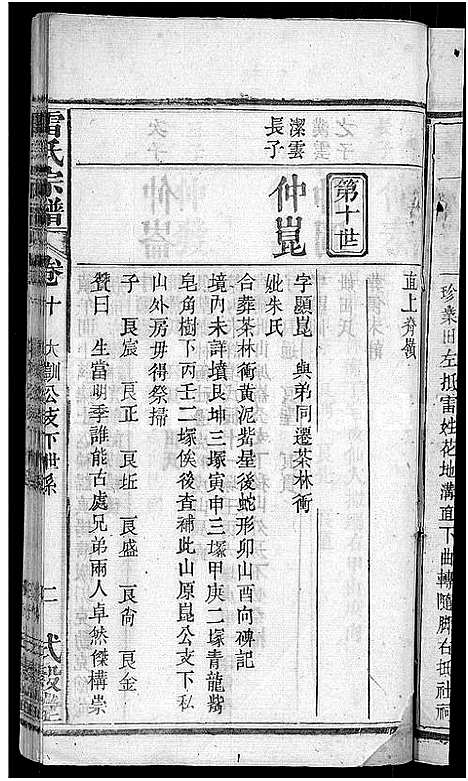 珍桑田左抵雷姓花地溝直下曲轉隨脚右抵社祠
直上脊嶺
第十世
潔雲
長子
仲崑
字顯崑　與弟同遷茶林衝
妣朱氏
合葬茶林衝黃泥觜星後蛇形卯山酉向碑記
境內未詳墳艮坤三塚寅申三塚甲庚二塚青龍觜
皂角樹下丙壬二塚俟後查補此山原崑公支下私
山外房毋得祭掃
子　艮宸　艮正　艮坵　艮盛　艮尚　艮金
贊曰　生當明季誰能古處兄弟兩人卓然傑構崇
雷氏宗譜
卷十　大訓公支下世系
二　式穀堂